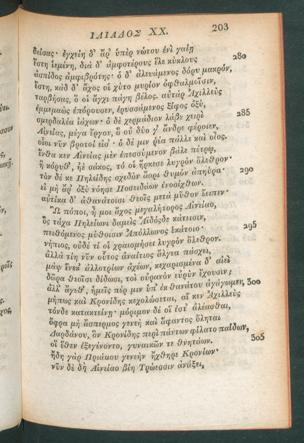 ΙΛΙΑΔΟΣ XX. 203
θείσας· ἐγχείη δ' ἄρ' ὑπὲρ νώτου ἐνὶ γαίῃ
ἔστη ἱεμένη, διὰ δ' ἀμφοτέρους ἕλε κύκλους 280
ἀσπίδος ἀμφιβρότης· ὁ δ' ἀλευάμενος δόρυ μακρὸν,
ἔστη, κὰδ δ' ἄχος οἱ χύτο μυρίον ὀφθαλμοῖσιν,
ταρβήσας, ὅ οἱ ἄγχι πάγη βέλος. αὐτὰρ Ἀχιλλεὺς
ἐμμεμαὼς ἐπόρουσεν, ἐρυσσάμενος ξίφος ὀξὺ,
σμερδαλέα ἰάχων· ὁ δὲ χερμάδιον λάβε χειρὶ 285
Αἰνείας, μέγα ἔργον, ὃ οὐ δύο γ' ἄνδρε φέροιεν,
οἷοι νῦν βροτοί εἰσ'· ὁ δέ μιν ῥέα πάλλε καὶ οἶος.
ἔνθα κεν Αἰνείας μὲν ἐπεσσύμενον βάλε πέτρῳ,
ἢ κόρυθ', ἠὲ σάκος, τό οἱ ἤρκεσε λυγρὸν ὄλεθρον·
τὸν δέ κε Πηλείδης σχεδὸν ἄορι θυμὸν ἀπηύρα· 290
εἰ μὴ ἄρ' ὀξὺ νόησε Ποσειδάων ἐνοσίχθων.
αὐτίκα δ' ἀθανάτοισι θεοῖς μετὰ μῦθον ἔειπεν·
Ὢ πόποι, ἦ μοι ἄχος μεγαλήτορος Αἰνείαο,
ὃς τάχα Πηλείωνι δαμεὶς Ἄϊδόσδε κάτεισιν,
πειθόμενος μύθοισιν Ἀπόλλωνος ἑκάτοιο· 295
νήπιος, οὐδέ τί οἱ χραισμήσει λυγρὸν ὄλεθρον.
ἀλλὰ τίη νῦν οὗτος ἀναίτιος ἄλγεα πάσχει,
μὰψ ἕνεκ' ἀλλοτρίων ἀχέων, κεχαρισμένα δ' αἰεὶ
δῶρα θεοῖσι δίδωσι, τοὶ οὐρανὸν εὐρὺν ἔχουσιν;
ἀλλ' ἄγεθ', ἡμεῖς πέρ μιν ὑπ' ἐκ θανάτου ἀγάγωμεν, 300
μήπως καὶ Κρονίδης κεχολώσεται, αἴ κεν Ἀχιλλεὺς
τόνδε κατακτείνῃ· μόριμον δέ οἵ ἐστ' ἀλέασθαι,
ὄφρα μὴ ἄσπερμος γενεὴ καὶ ἄφαντος ὄληται
Δαρδάνου, ὃν Κρονίδης περὶ πάντων φίλατο παίδων,
οἳ ἕθεν ἐξεγένοντο, γυναικῶν τε θνητάων. 305
ἤδη γὰρ Πριάμου γενεὴν ἤχθηρε Κρονίων·
νῦν δὲ δὴ Αἰνείαο βίη Τρώεσσιν ἀνάξει,